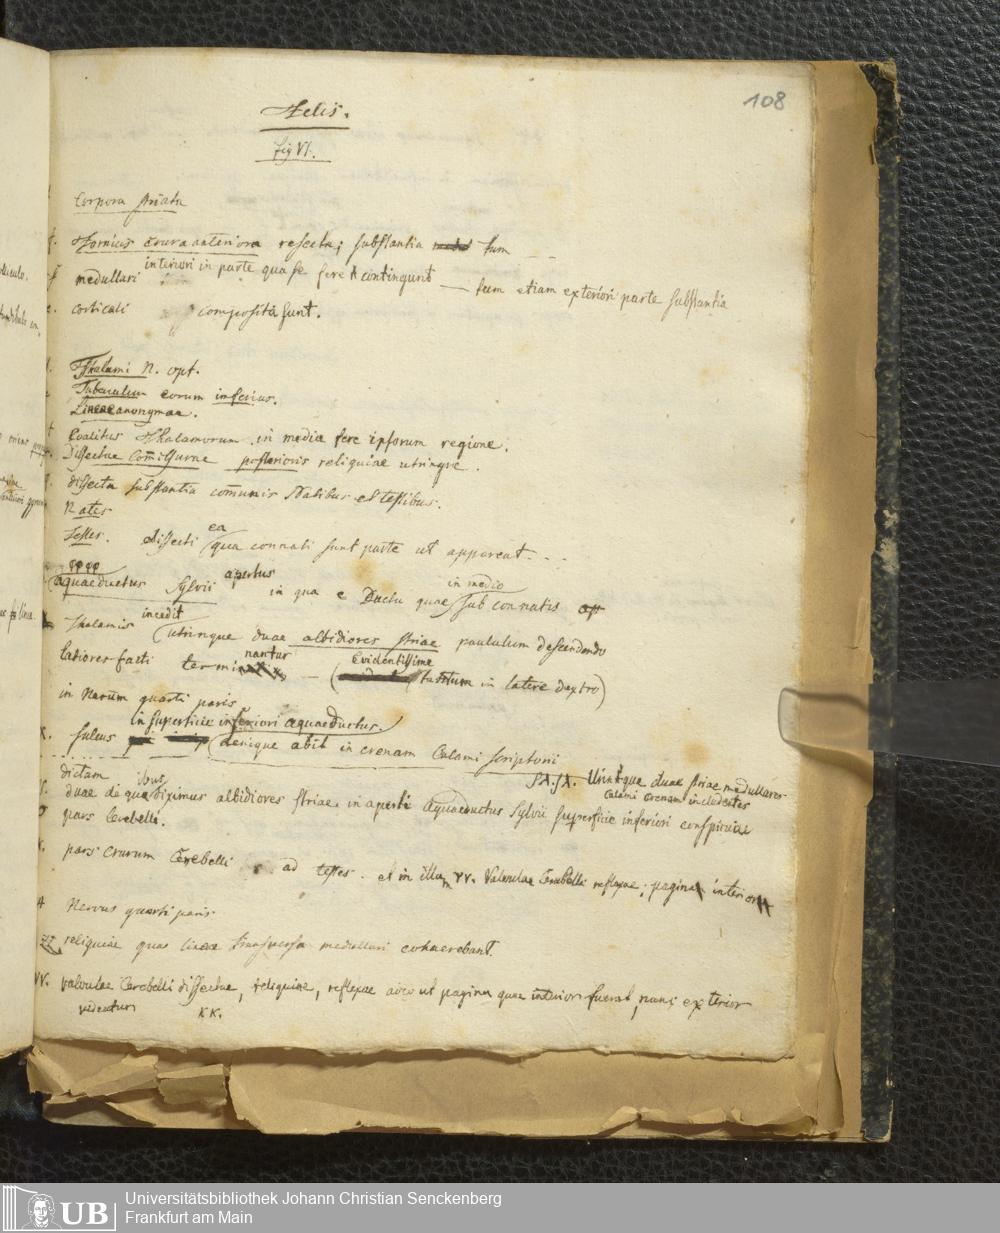 108
Felis.
fig VI.
Corpora striata
Fornicis crura anteriora resecta; substantia tum
medullari interiori in parte qua se fere contingunt — tum etiam exteriori parte substantia
corticali composita sunt.
Thalami N. opt.
Tuberculum eorum inferius.
Lineae anonymae.
Coalitus Thalamorum in media fere ipsorum regione.
Dissectae Com̄issurae posterioris reliquiae utringve.
dissecta substantia com̄unis Natibus et testibus.
Nates
Testes. dissecti ea qua connati sunt parte ut appareat
φφφφ
aquaeductus Sylvii apertus in qua e Ductu quae in medio sub connatis
Thalamis incedit utrinque duae albidiores striae paululum descendendo
latiores facti terminantur — (Evidentissime tantum in latere dextro)
in Nervum quarti paris
sulcus in superficie inferiori aquaeductus. denique abit in crenam Calami scriptorii
dictam
SA. SA. Utrinque duae striae medullares
Calami crenam includentes
duae de quibus diximus albidiores striae in aperti Aquaeductus Sylvii superficie inferiori conspicuae
pars Cerebelli.
pars crurum Cerebelli ad testes et in illum VV. Valvulae Cerebelli reflexae; pagina interior
Nervus quarti paris
reliquiae quae lineae transversa medullari cohaerebant.
VV. valvulae Cerebelli dissectae, reliquiae, reflexae adeo ut pagina quae interior fuerat, nunc exterior
videatur KK.
UB
Universitätsbibliothek Johann Christian Senckenberg
Frankfurt am Main